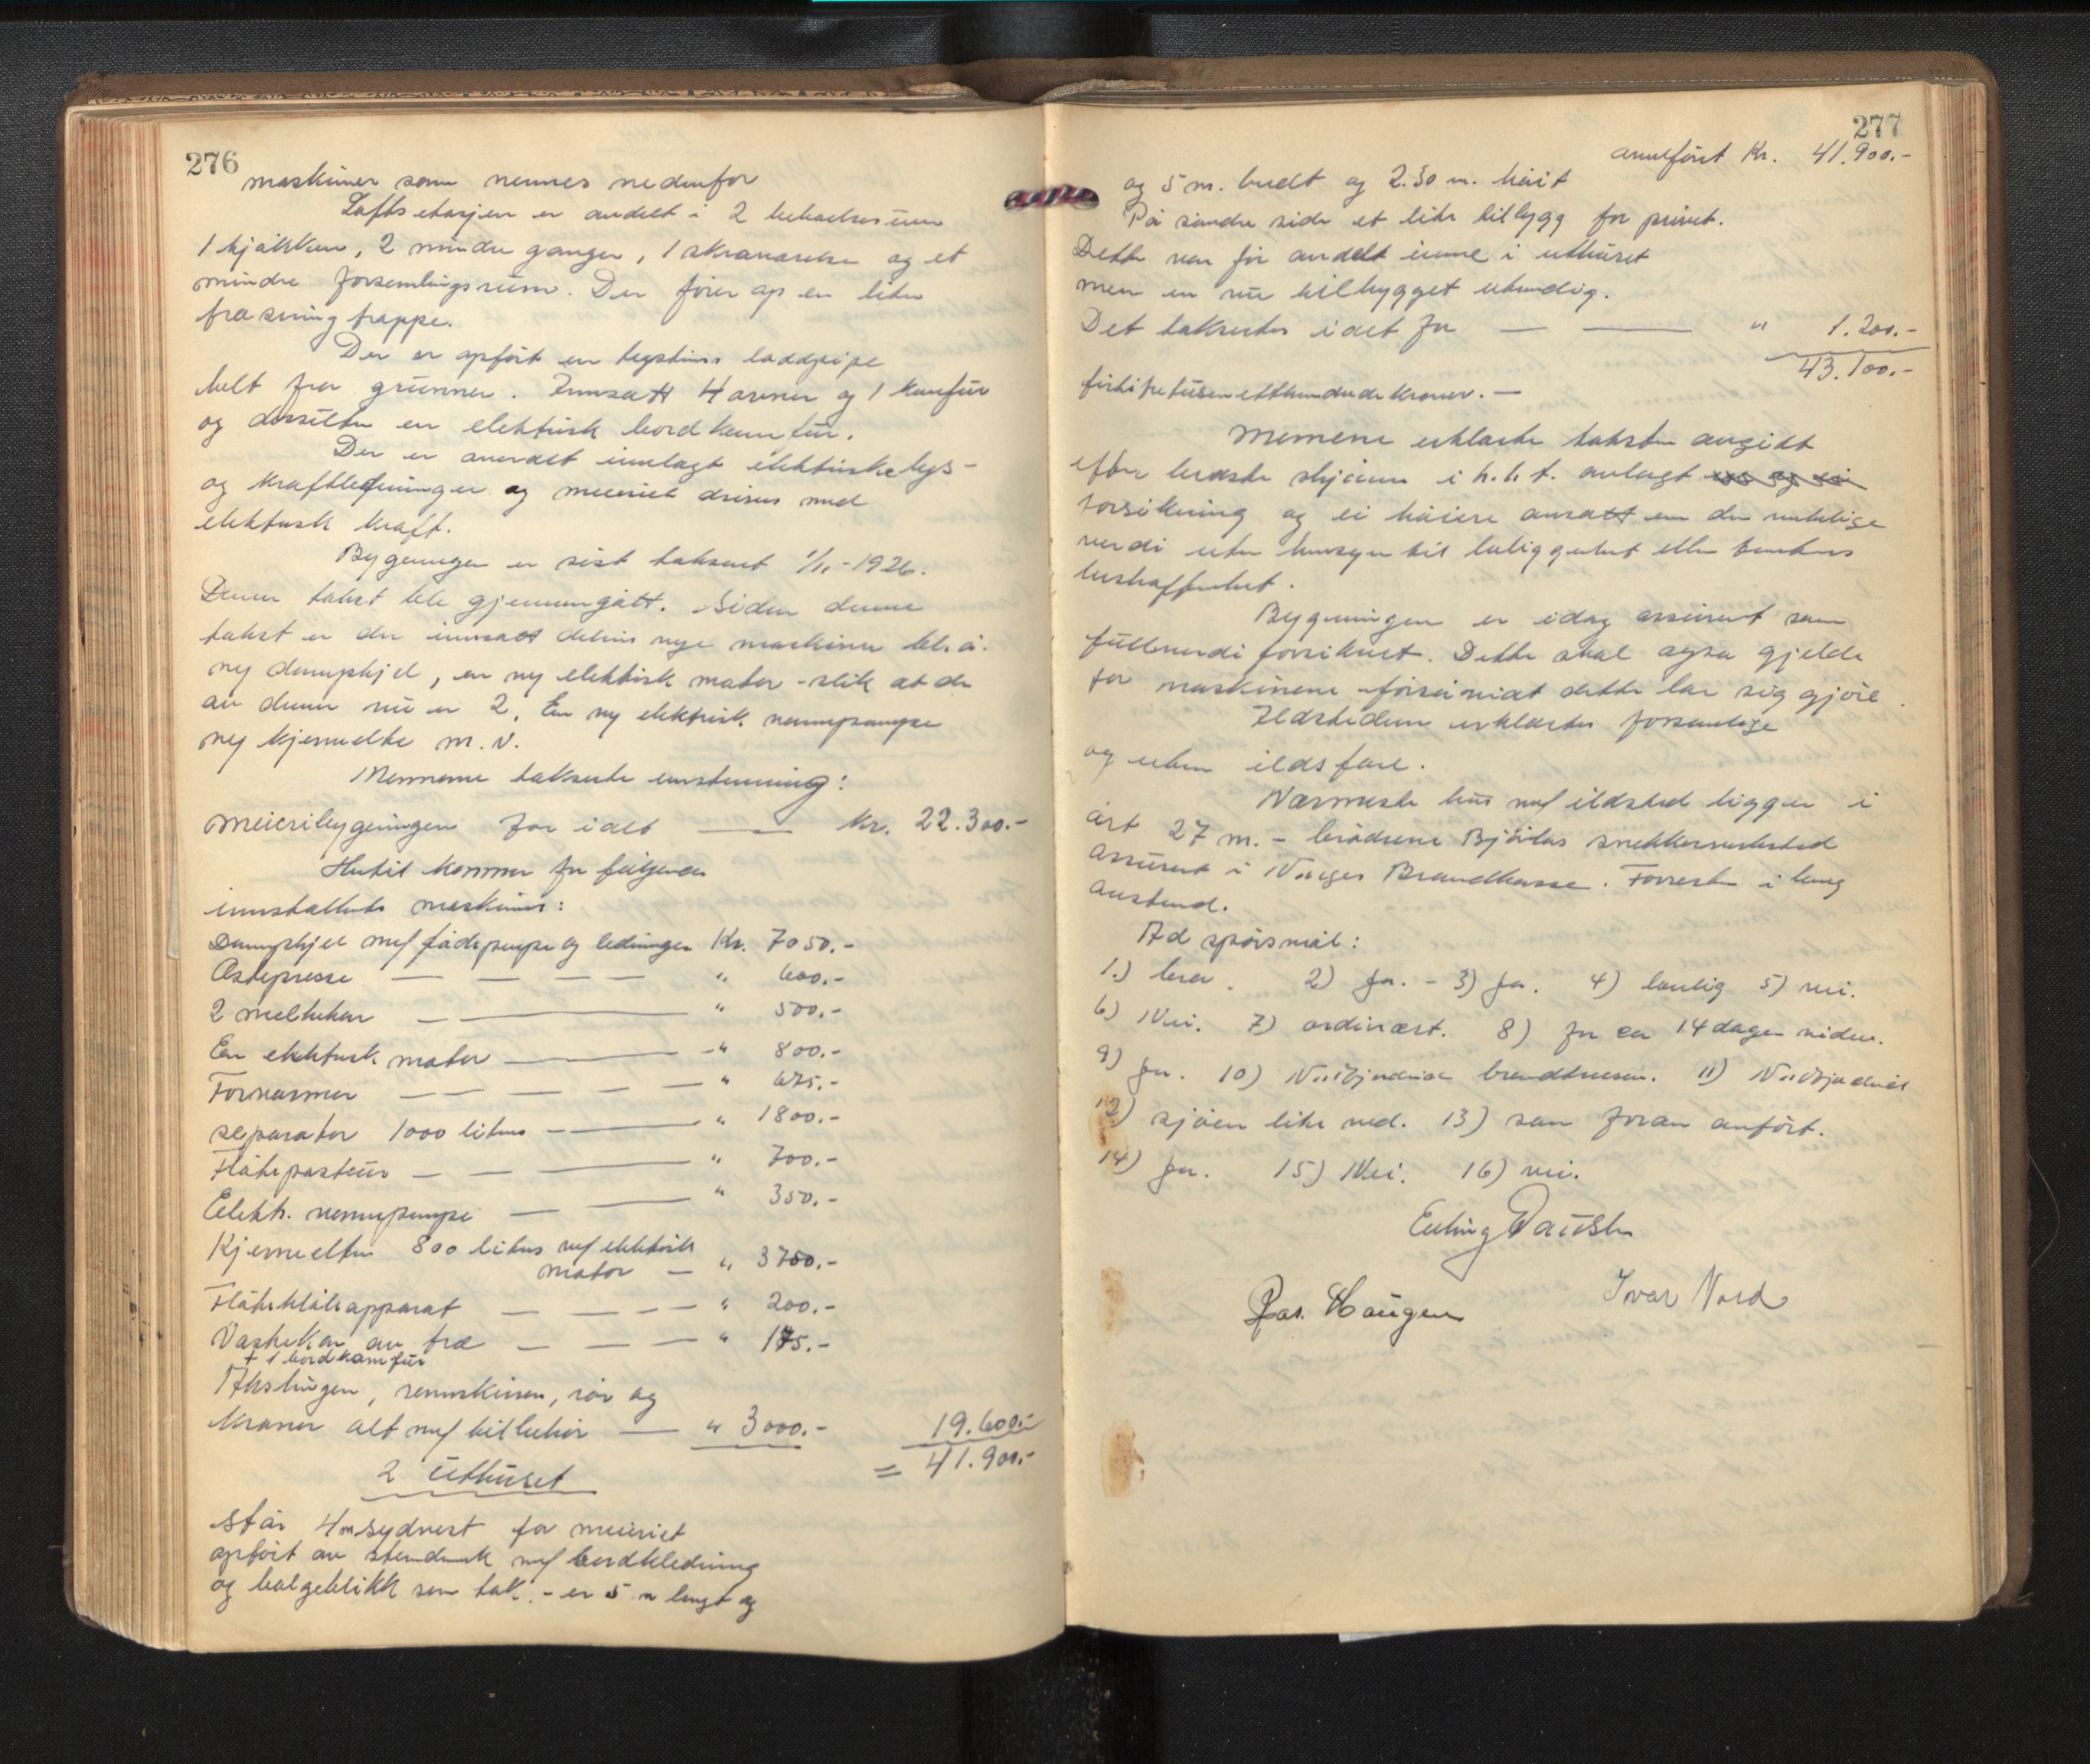 276
maskiner som nevnes nedenfor
Loftsetasjen er avdelt i 2 beboelsesrum
1 kjøkken, 2 mindre ganger, 1 skranavdelse og et
mindre forsamlingsrum. Der fører op en liten
fra sving trappe.
Der er opført en teglstens loddpipe
helt fra grunnen. Innsatt 4 ovner og 1 komfür
og dessuten en elektrisk bordkomfür.
Der er overalt innlagt elektriske lys-
og kraftledninger og meieriet drives med
elektrisk kraft.
Bygningen er sist taksert 1/11-1926.
Denne takst ble gjennemgått. Siden denne
takst er der innsatt delvis nye maskiner bl.a.
ny dampkjel, en ny elektrisk motor - slik at der
av denne nu er 2. En ny elektrisk
ny kjerneelte m.v.
Mennene takserte enstemmig:
Meieribygningen for idet — kr. 22.300.-
Hertil kommer for følgende
innstallerte maskiner:
Dampkjel m/ fødepumpe og ledninger Kr. 7050.-
Ostepresse — — — — " 600.-
2 melkekar — — " 500.-
En elektrisk motor — — " 800.-
Forvarmer — — — — " 675.-
separator 1000 liters — — " 1800.-
Fløtepasteur — — — " 700.-
Elektr. — — " 350.-
Kjerneelter 800 liters m/ elektrisk
motor — " 3750.-
Fløtekjøleapparat — — — — " 200.-
Vaskekar av tre — — — " 175.-
+ 1 bordkomfür
Akslinger, remskiver, rør og
kraner alt m/ tilbehør — " 3000.- 19.600.-
= 41.900.-
2 Uthuset
står 4 m sydvest for meieriet
opført av stenderverk m/ bordkledning
og bølgeblikk som tak. - er 5 m langt og
277
overført Kr. 41.900.-
og 5 m. bredt og 2.30 m. høit
På søndre side et lite tilbygg for privet.
Dette var før avdelt inne i uthuset
men er nu tilbygget utvendig.
Det takseres idet for — — " 1.200.-
43.100.-
førtitretusenetthundrede kroner. —
Mennene erklærte taksten avgitt
efter bedste skjønn i h.h.t. avlagt
forsikring og ei høiere ansatt en den virkelige
verdi uten hensyn til beliggenhet eller tomtens
beskaffenhet.
Bygningen er idag assurert som
fullverdi forsikret. Dette skal også gjelde
for maskinene forsåvidt dette lar sig gjøre.
Ildstedene erklæres forsvarlige
og uten ildsfare.
Nærmeste hus m/ ildsted ligger i
øst 27 m. - brødrene Bjåstas snekkerverksted
assurert i Norges Brandkasse. Forresten i lang
avstand.
Ad spørsmål:
1.) bra. 2) Ja. - 3) Ja. 4) lovlig 5) nei.
6) Nei. 7) ordinært. 8) for ca 14 dager siden.
9) Ja. 10) Nordfjordeid brandvesen. 11) Nordfjordeid
12) sjøen like ved. 13) som foran anført.
14) Ja. 15) Nei. 16) nei.
Erling Os
Ras. Haugen Ivar Nord